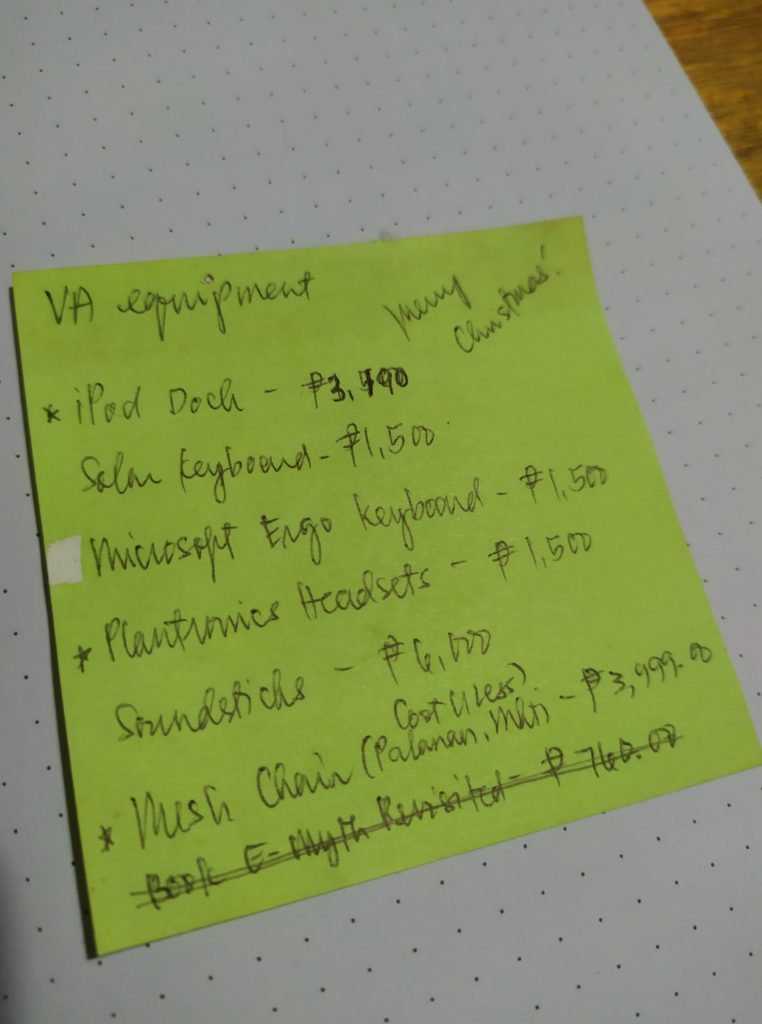 VA equipment
Merry
Christmas!
* iPod Dock - ₱3,490
Solar Keyboard - ₱1,500
Microsoft Ergo Keyboard - ₱1,500
* Plantronics Headsets - ₱1,500
Soundsticks - ₱6,000
Cost U Less)
* Mesh Chair (Palanan, Mkti - ₱3,999.00
Book E-Myth Revisited - ₱ 760.00